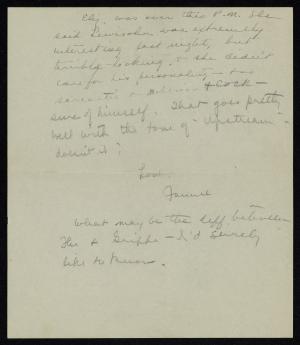 Eliz. was over this P.M. She
said Lewisohn was extremely
interesting last night, but
terrible looking, & she didn't
care for his personality - too
sarcastic & & cock-
sure of himself. That goes pretty
well with the tone of "Upstream" -
doesn't it?
Love,
Fannie
What may be the diff between
Flu & Grippe - I'd surely
like to know.